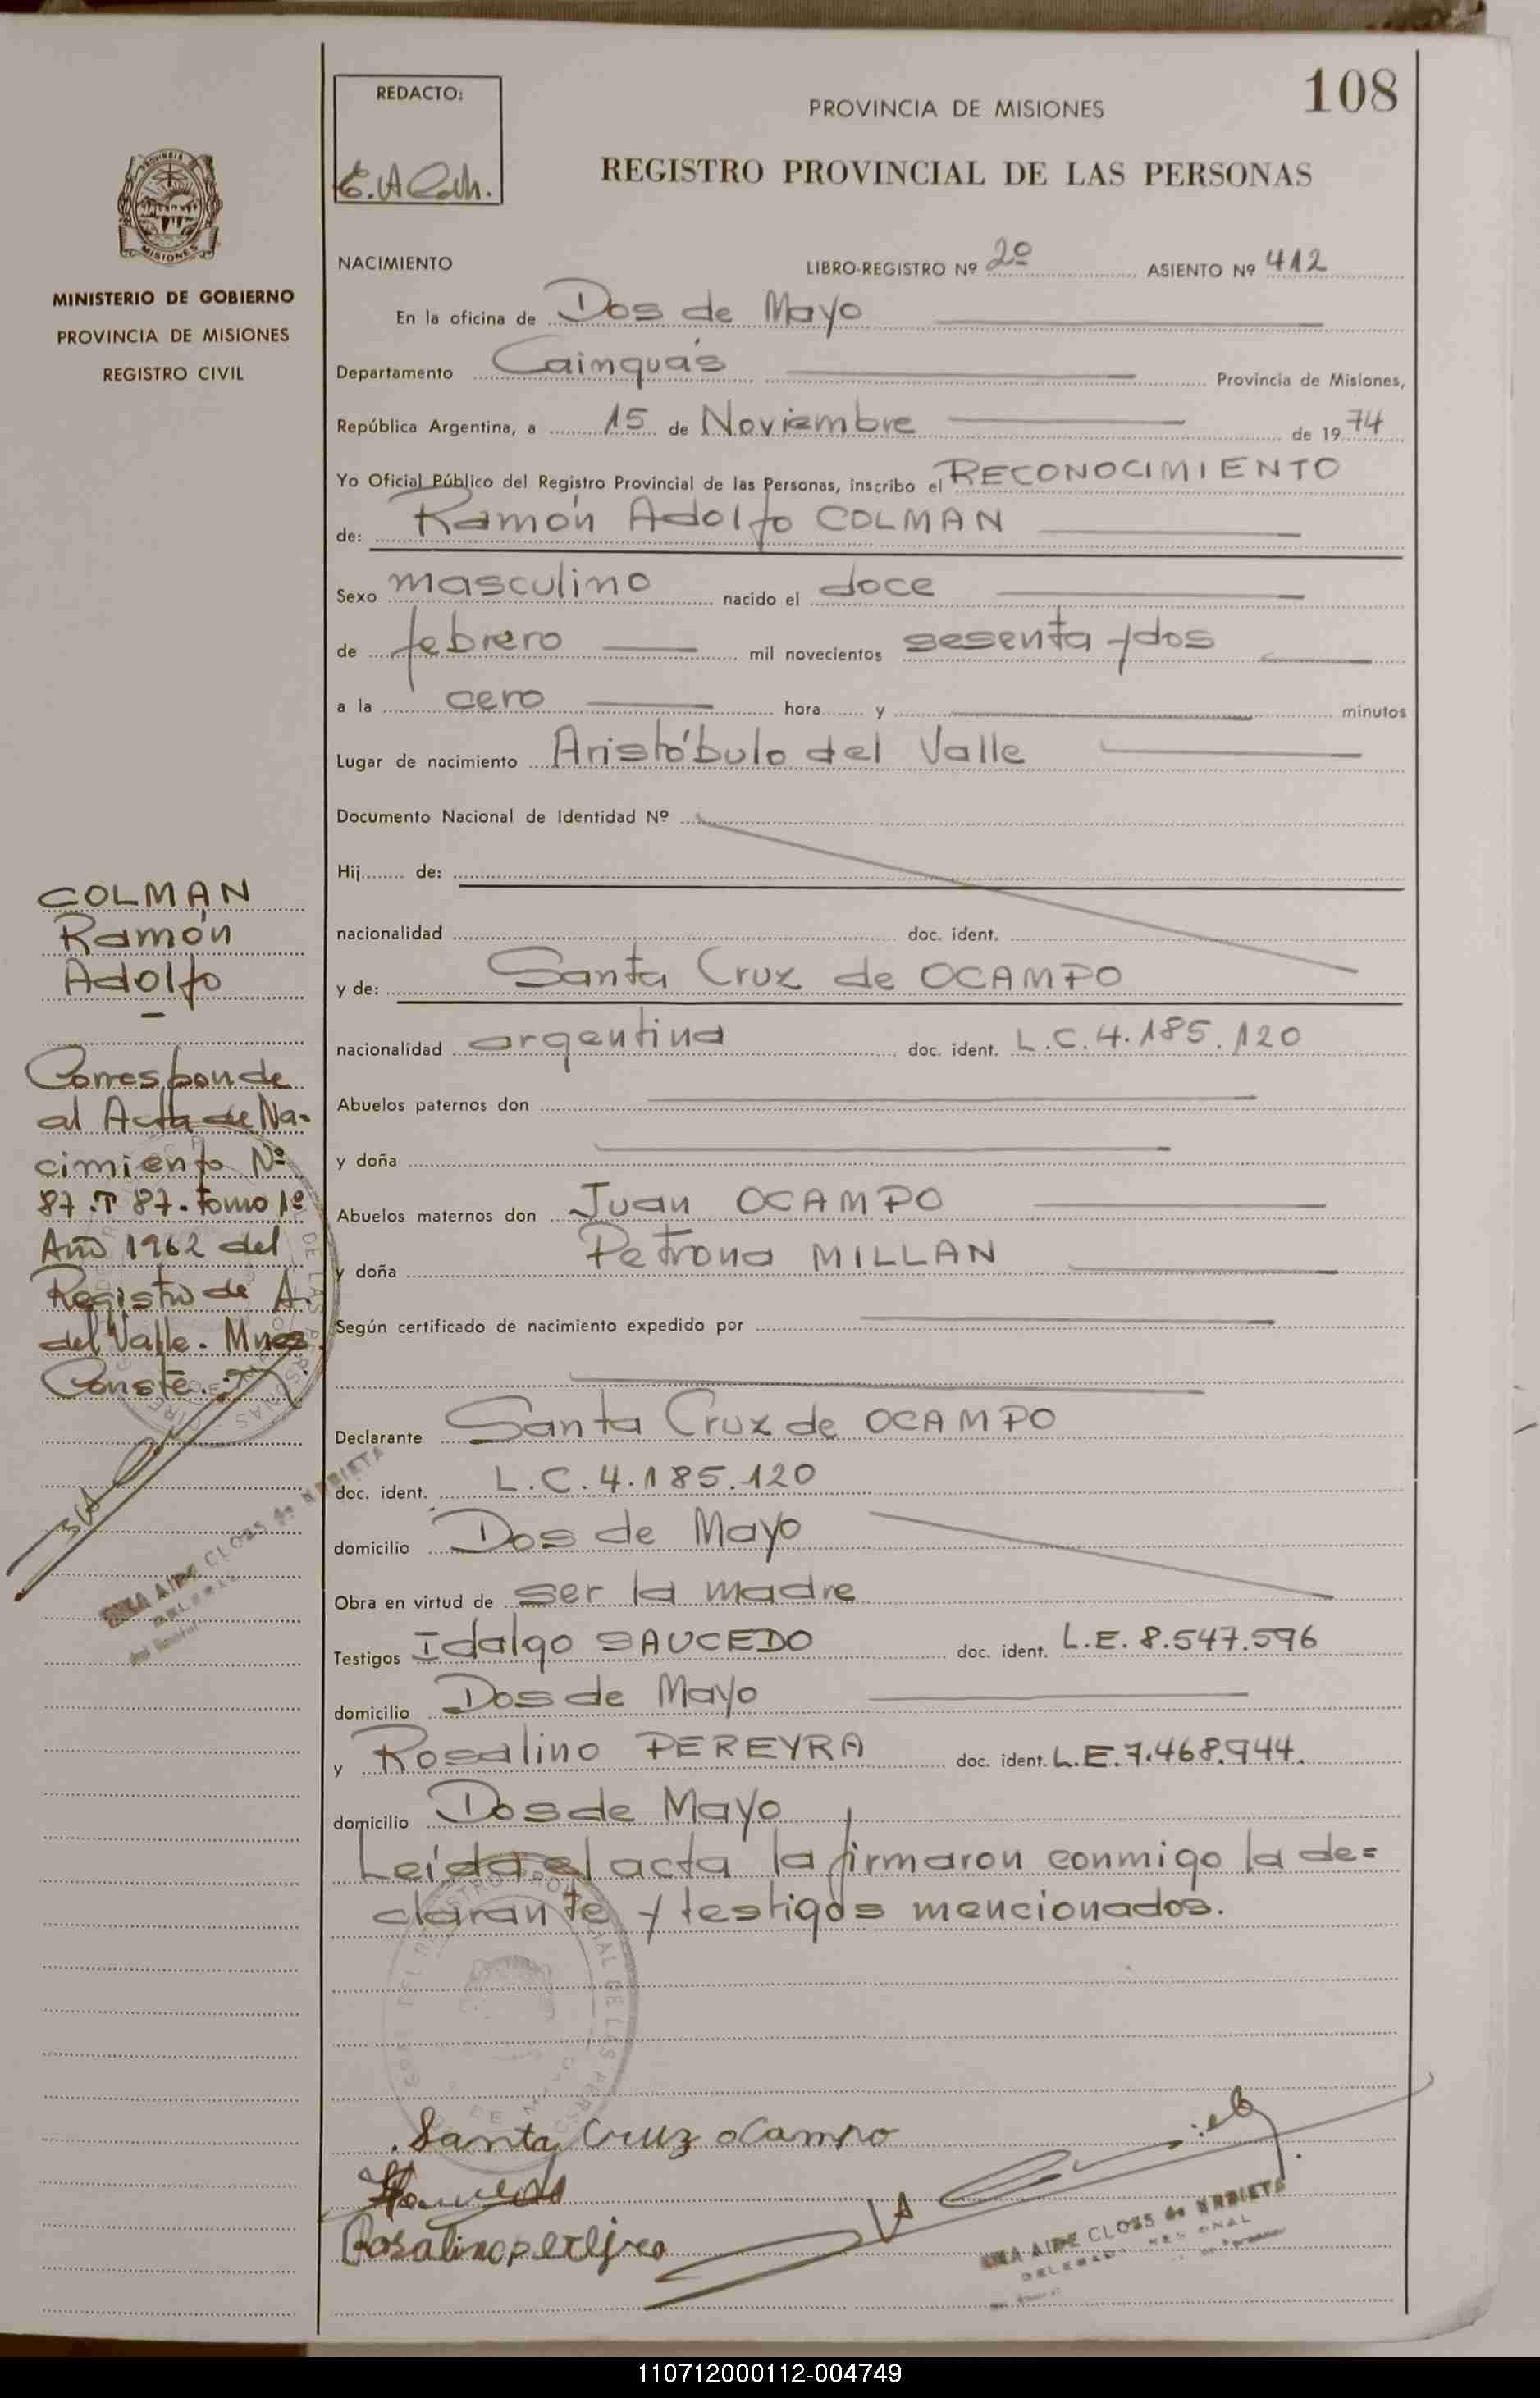 108
REDACTO:
PROVINCIA DE MISIONES
REGISTRO PROVINCIAL DE LAS PERSONAS
PROVINCIA
MISIONES
MINISTERIO DE GOBIERNO
PROVINCIA DE MISIONES
REGISTRO CIVIL
NACIMIENTO LIBRO-REGISTRO Nº 2º ASIENTO Nº 412
En la oficina de Dos de Mayo
Departamento Cainguás Provincia de Misiones,
República Argentina, a 15 de Noviembre de 1974
Yo Oficial Público del Registro Provincial de las Personas, inscribo el RECONOCIMIENTO
de: Ramón Adolfo COLMAN
Sexo masculino nacido el doce
de febrero mil novecientos sesenta y dos
a la cero hora y minutos
Lugar de nacimiento Aristóbulo del Valle
Documento Nacional de Identidad Nº
Hij de:
nacionalidad doc. ident.
y de: Santa Cruz de OCAMPO
nacionalidad argentina doc. ident. L.C.4.185.120
Abuelos paternos don
y doña
Abuelos maternos don Juan OCAMPO
y doña Petrona MILLAN
Según certificado de nacimiento expedido por
Declarante Santa Cruz de OCAMPO
doc. ident. L.C.4.185.120
domicilio Dos de Mayo
Obra en virtud de ser la madre
Testigos Idalgo SAUCEDO doc. ident. L.E. 8.547.596
domicilio Dos de Mayo
y Rosalino PEREYRA doc. ident. L.E.7.468.944.
domicilio Dos de Mayo
Leída el acta la firmaron conmigo la de=
clarante y testigos mencionados.
Santa Cruz ocampo
Rosalino pereyra
AIDE CLOSS de ARRIETA
COLMAN
Ramón
Adolfo
Corresponde
al Acta de Na-
cimiento Nº
87.T 87. Tomo 1º
Año 1962 del
Registro de A.
del Valle. Mnes
Conste.
AIDE CLOSS de ARRIETA
110712000112-004749